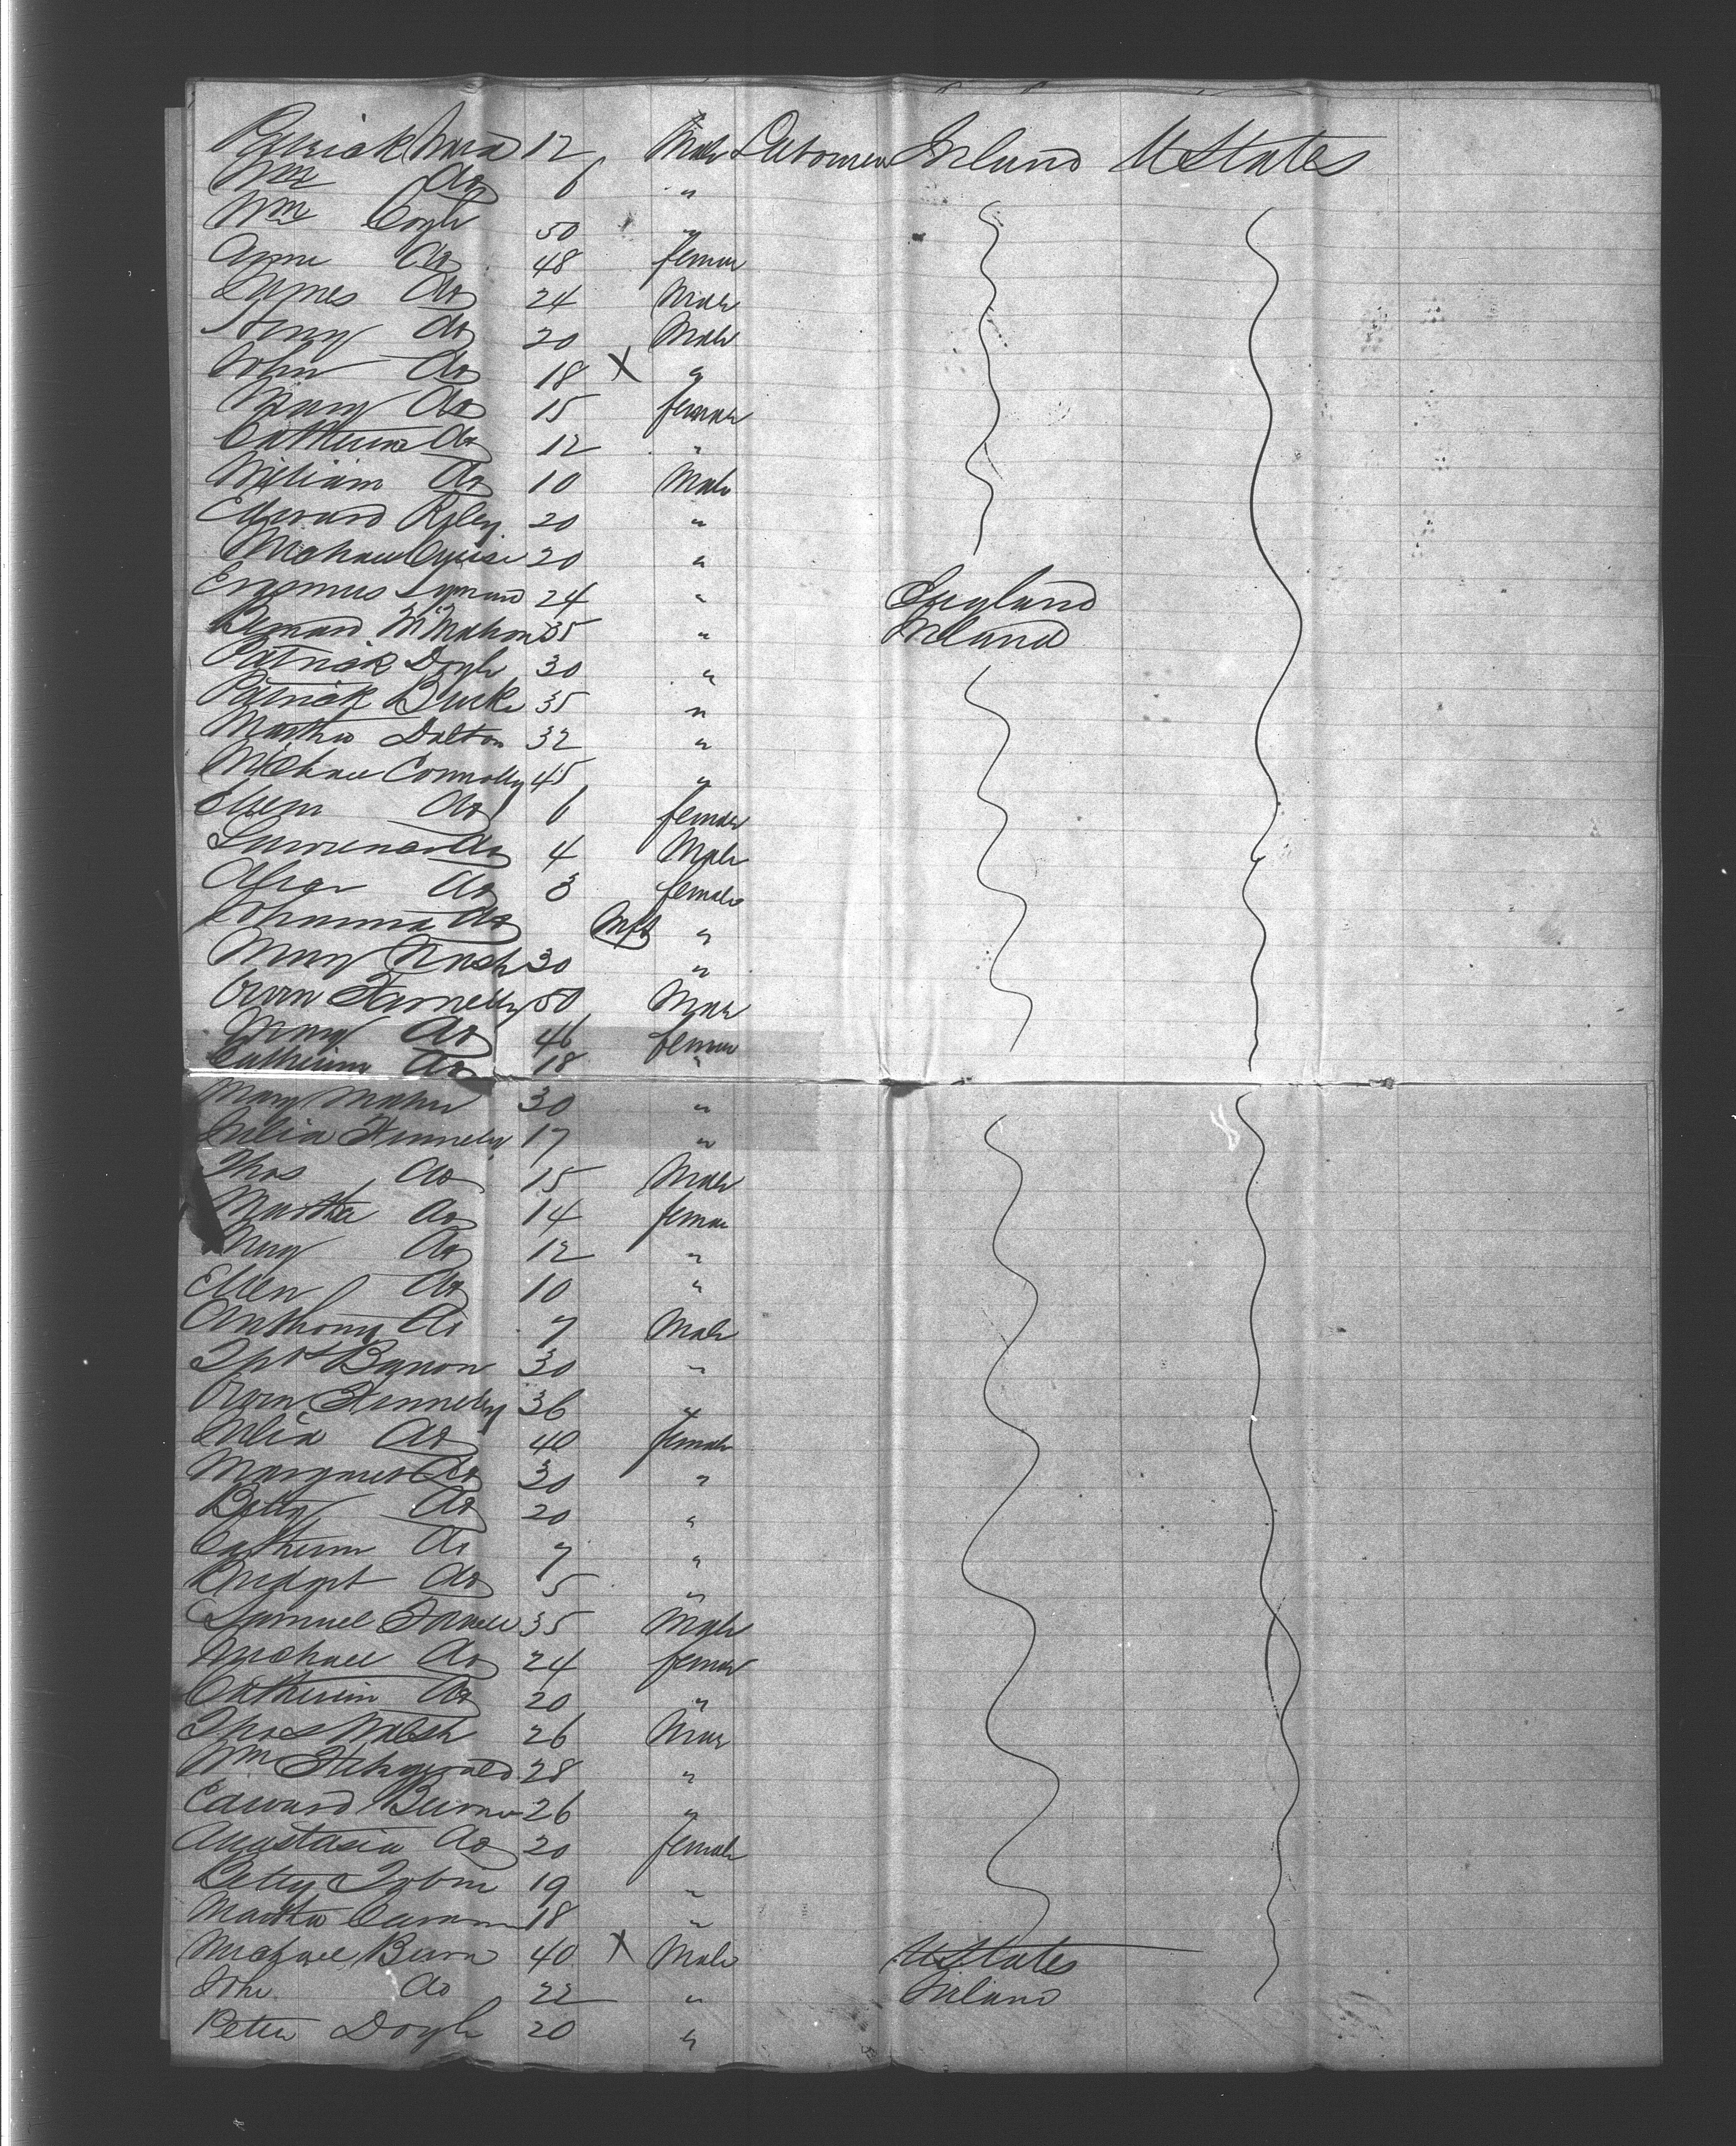 Patrick Ward 12 Male Labourer Ireland U States
Wm do 6 "
Wm Coyle 50 "
Anne do 48 female
James do 24 Male
Henry do 20 Male
John do 18 X "
Mary do 15 female
Catherine do 12 "
William do 10 Male
Edward Riley 20 "
Michael 20 "
Erasmus 24 " England
Bernard McMahon 35 " Ireland
Patrick Doyle 30 "
Patrick Burke 35 "
Matthew Dalton 32 "
Michael Connolly 45 "
Ellen do 6 female
Lawrence do 4 Male
do 3 female
Johanna do Inft "
Mary Nash 30 "
Owen 50 Male
Mary do 46 female
Catherine do 18 "
Mary Maher 30 "
Julia 17 "
Thos do 15 Male
Martha do 14 female
Mary do 12 "
Ellen do 10 "
Anthony do 7 Male
Thos 30 "
Owen 36 "
Julia do 40 female
Margaret do 30 "
Betty do 20 "
Catherine do 7 "
Bridget do 5 "
Samuel 35 Male
Michael do 24 female
Catherine do 20 "
Thos Walsh 26 Male
Wm Fitzgerald 28 "
Edward 26 "
Anastasia do 20 female
Betty Tobin 19 "
Martha 18 "
Michael Burn 40 X Male U States
John do 22 " Ireland
Peter Doyle 20 "